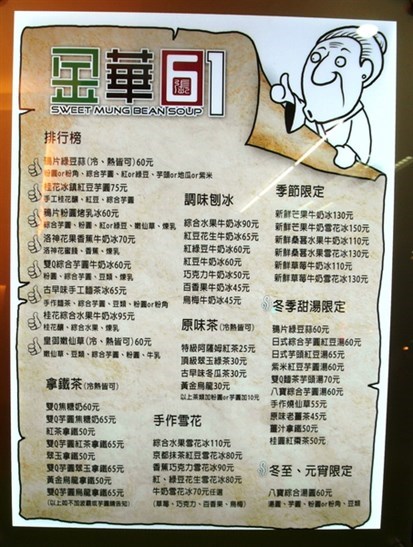 金華
61
SWEET MUNG BEAN SOUP
排行榜
鴉片綠豆蒜(冷、熱皆可)60元
粉圓or粉角、綜合芋圓、紅or綠豆、芋頭or地瓜or紫米
桂花冰鎮紅豆芋圓75元
手工桂花釀、紅豆、綜合芋圓
鴉片粉圓烤乳冰60元
綜合芋圓、粉圓、紅or綠豆、嫩仙草、煉乳
洛神花果香蕉牛奶冰70元
洛神花蜜餞、香蕉、煉乳
雙Q綜合芋圓牛奶冰60元
粉圓、綜合芋圓、豆類、煉乳
古早味手工麵茶冰65元
手作麵茶、綜合芋圓、豆類、粉圓or粉角
桂花綜合水果牛奶冰95元
桂花釀、綜合水果、煉乳
皇御嫩仙草(冷、熱皆可)60元
嫩仙草、豆類、綜合芋圓、粉圓、牛乳
拿鐵茶(冷熱皆可)
雙Q焦糖奶60元
雙Q芋圓焦糖奶65元
紅茶拿鐵50元
雙Q芋圓紅茶拿鐵65元
翠玉拿鐵50元
雙Q芋圓翠玉拿鐵65元
黃金烏龍拿鐵50元
雙Q芋圓烏龍拿鐵65元
調味刨冰
綜合水果牛奶冰90元
紅豆花生牛奶冰65元
紅綠豆牛奶冰60元
紅豆牛奶冰60元
巧克力牛奶冰50元
百香果牛奶冰45元
烏梅牛奶冰45元
原味茶(冷熱皆可)
特級阿薩姆紅茶25元
頂級翠玉綠茶30元
古早味冬瓜茶30元
黃金烏龍30元
以上茶類加粉圓or芋圓加10元
手作雪花
綜合水果雪花冰110元
京都抹茶紅豆雪花冰80元
香蕉巧克力雪花冰90元
紅、綠豆花生雪花冰80元
牛奶雪花冰70元任選
(草莓、巧克力、百香果、烏梅)
季節限定
新鮮芒果牛奶冰130元
新鮮芒果牛奶雪花冰150元
新鮮桑葚水果牛奶冰110元
新鮮桑葚水果雪花冰130元
新鮮草莓牛奶冰110元
新鮮草莓牛奶雪花冰130元
冬季甜湯限定
鴉片綠豆蒜60元
日式綜合芋圓紅豆湯60元
日式芋頭紅豆湯65元
紫米紅豆芋圓湯60元
雙Q麵茶芋頭湯70元
八寶綜合芋圓湯60元
手作燒仙草55元
原味老薑茶45元
薑汁拿鐵50元
桂圓紅棗茶50元
冬至、元宵限定
八寶綜合湯圓60元
湯圓、芋圓、粉圓or粉角、豆類